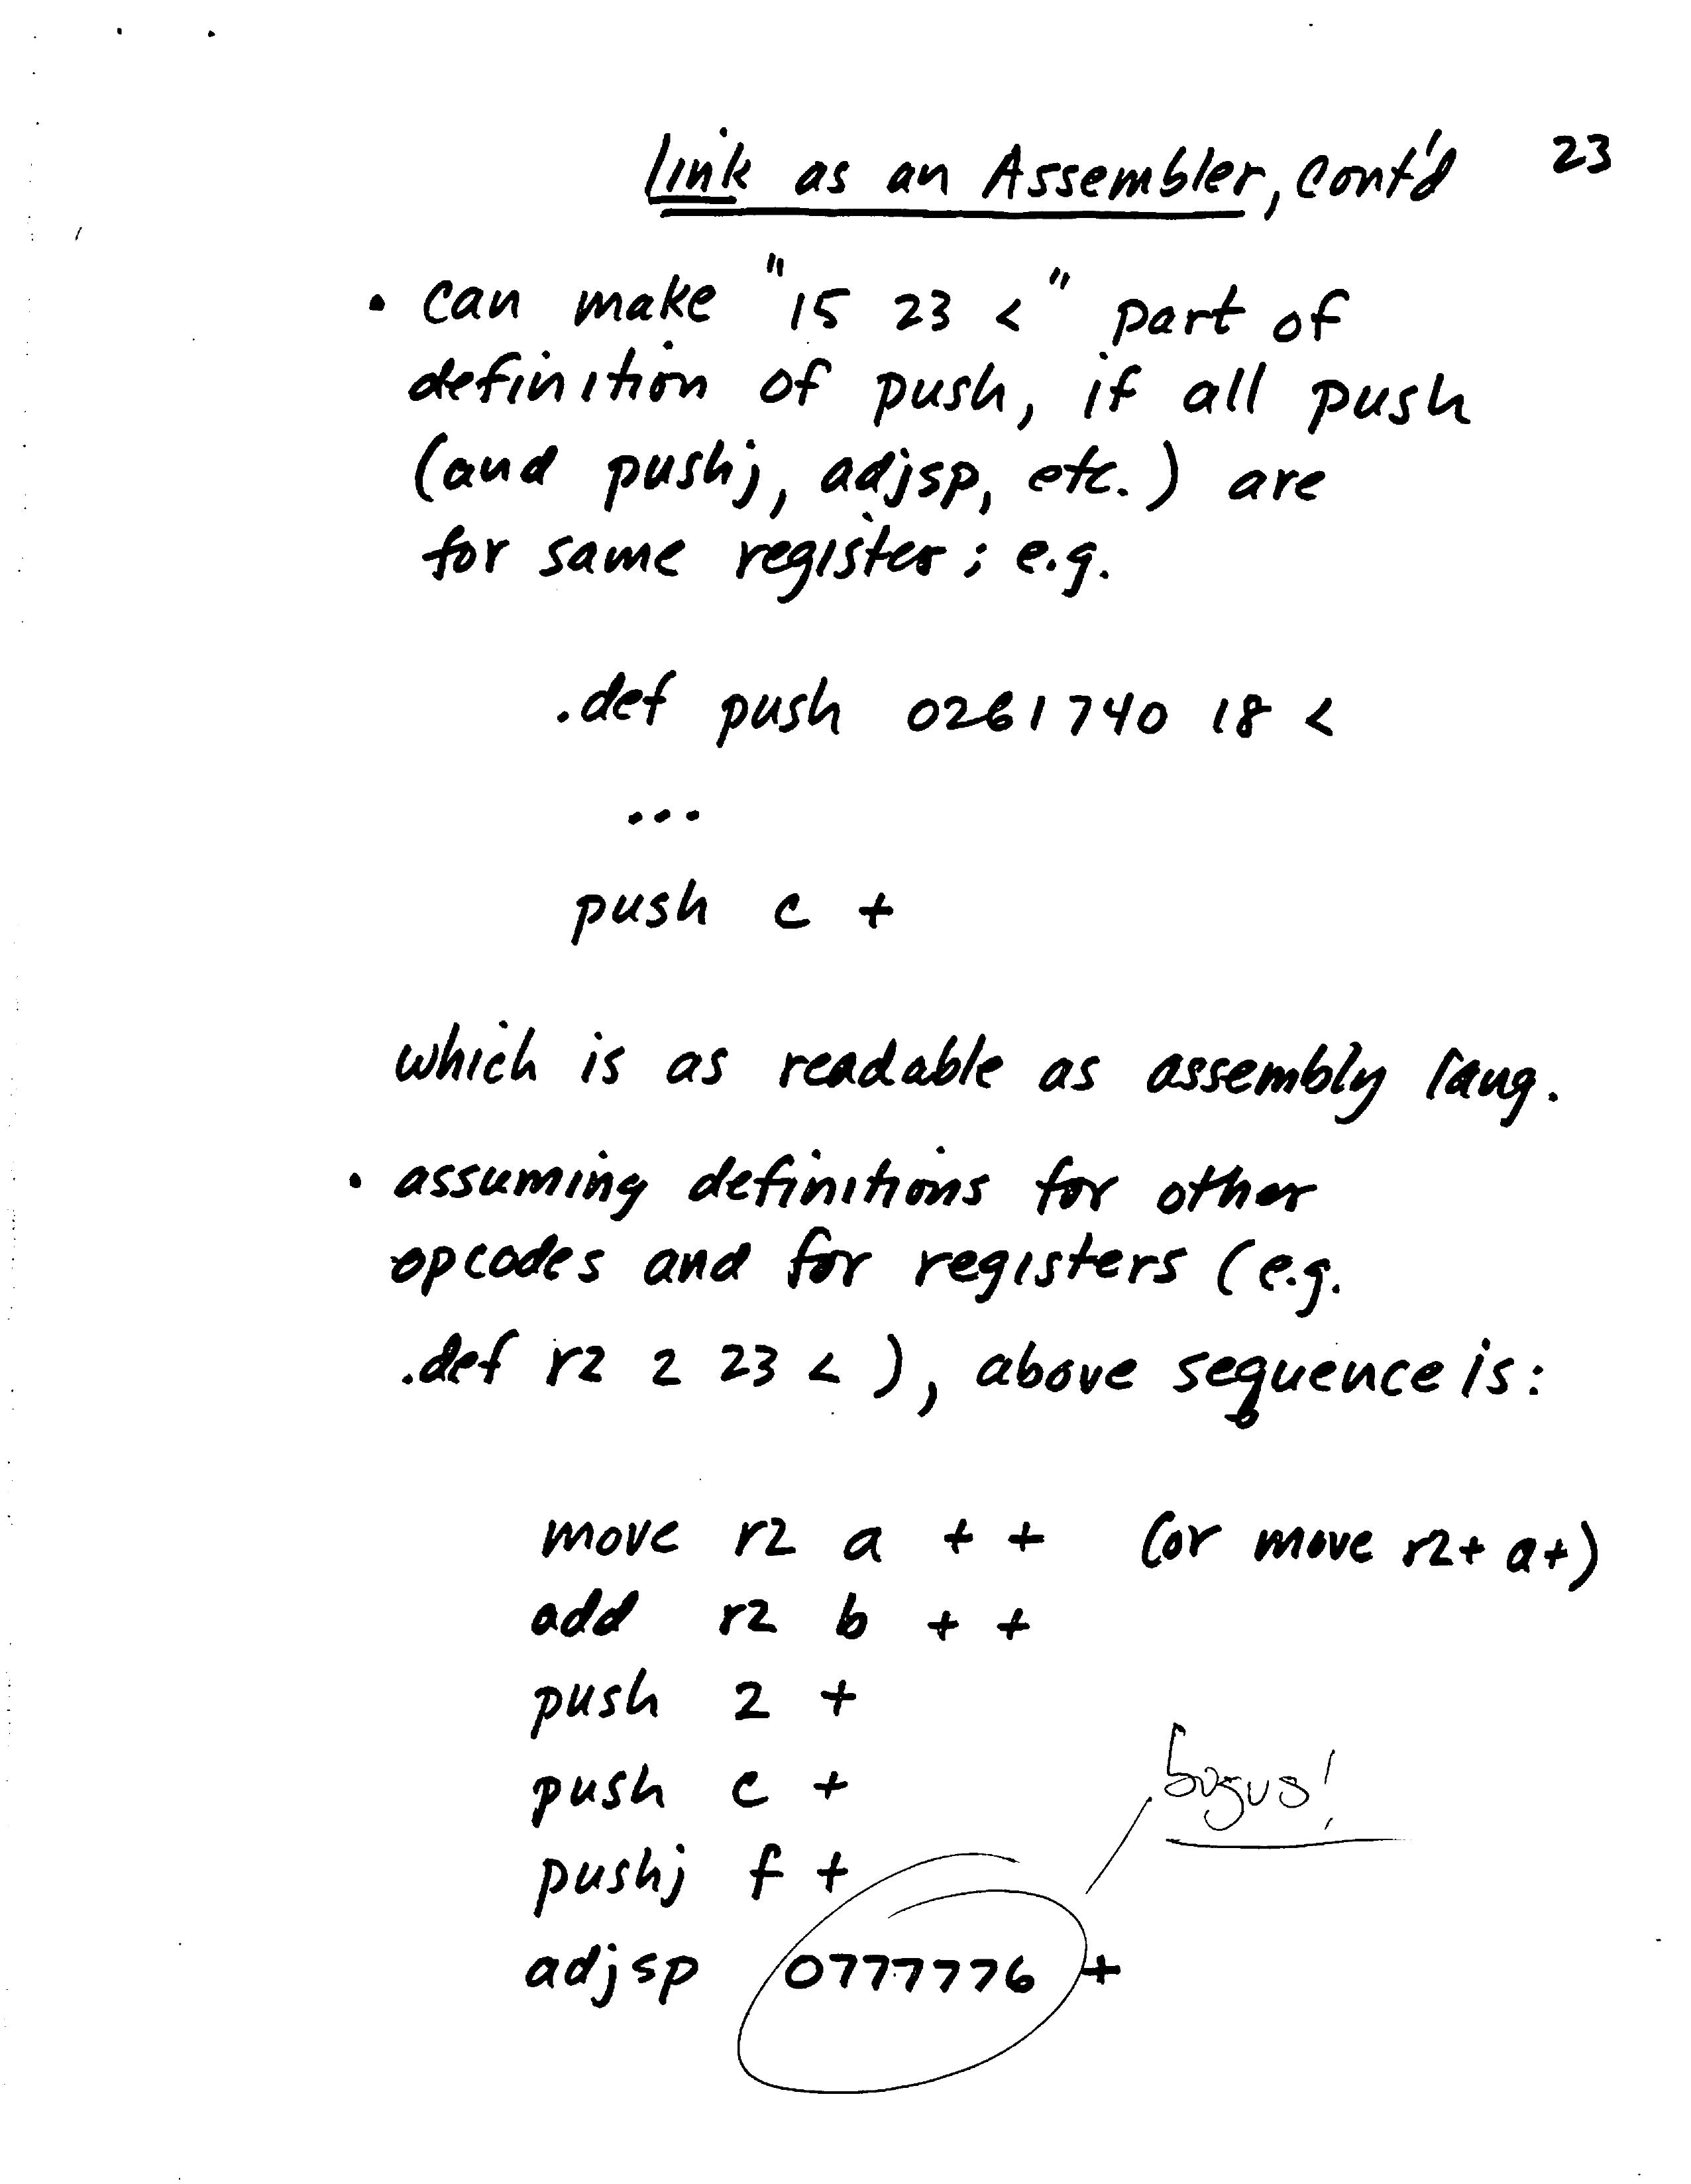 Link as an Assembler, cont'd 23
• can make "15 23 <" part of
definition of push, if all push
(and pushj, adjsp, etc.) are
for same register; e.g.
.def push 0261740 18 <
...
push c +
which is as readable as assembly lang.
• assuming definitions for other
opcodes and for registers (e.g.
.def r2 2 23 <), above sequence is:
move r2 a + + (or move r2+ a+)
add r2 b + +
push 2 +
push c +
bogus!
pushj f +
adjsp 0777776 +